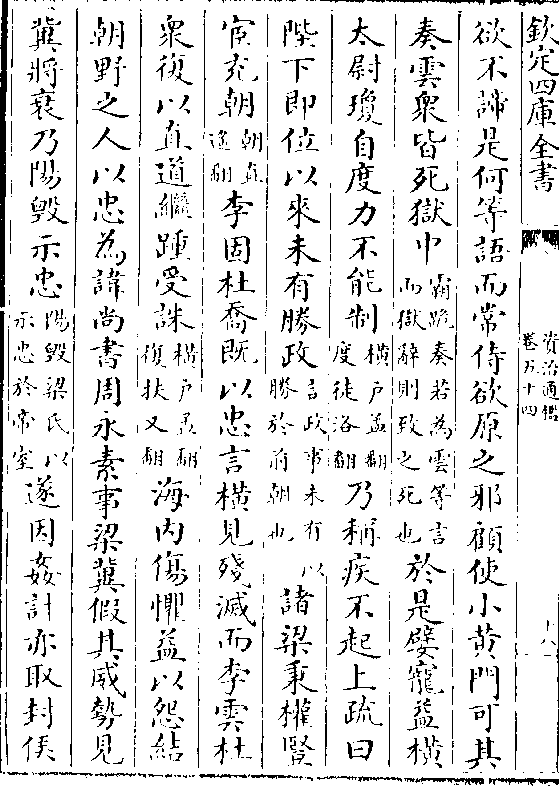 欽定四庫全書
資治通鑑
卷五十四
十八
欲不諦是何等語而常侍欲原之邪顧使小黄門可其
奏雲衆皆死獄中霸跪奏若為雲等言
而獄辭則致之死也於是嬖寵益横
太尉瓊自度力不能制横户孟翻
度徒洛翻乃稱疾不起上疏曰
陛下即位以來未有勝政言政事未有以
勝於前朝也諸梁秉權豎
宦充朝朝直
遥翻李固杜喬既以忠言横見殘滅而李雲杜
衆復以直道繼踵受誅横户孟翻
復扶又翻海内傷懼益以怨結
朝野之人以忠為諱尚書周永素事梁冀假其威勢見
冀將衰乃陽毁示忠陽毁梁氏以
示忠於帝室遂因姦計亦取封侯